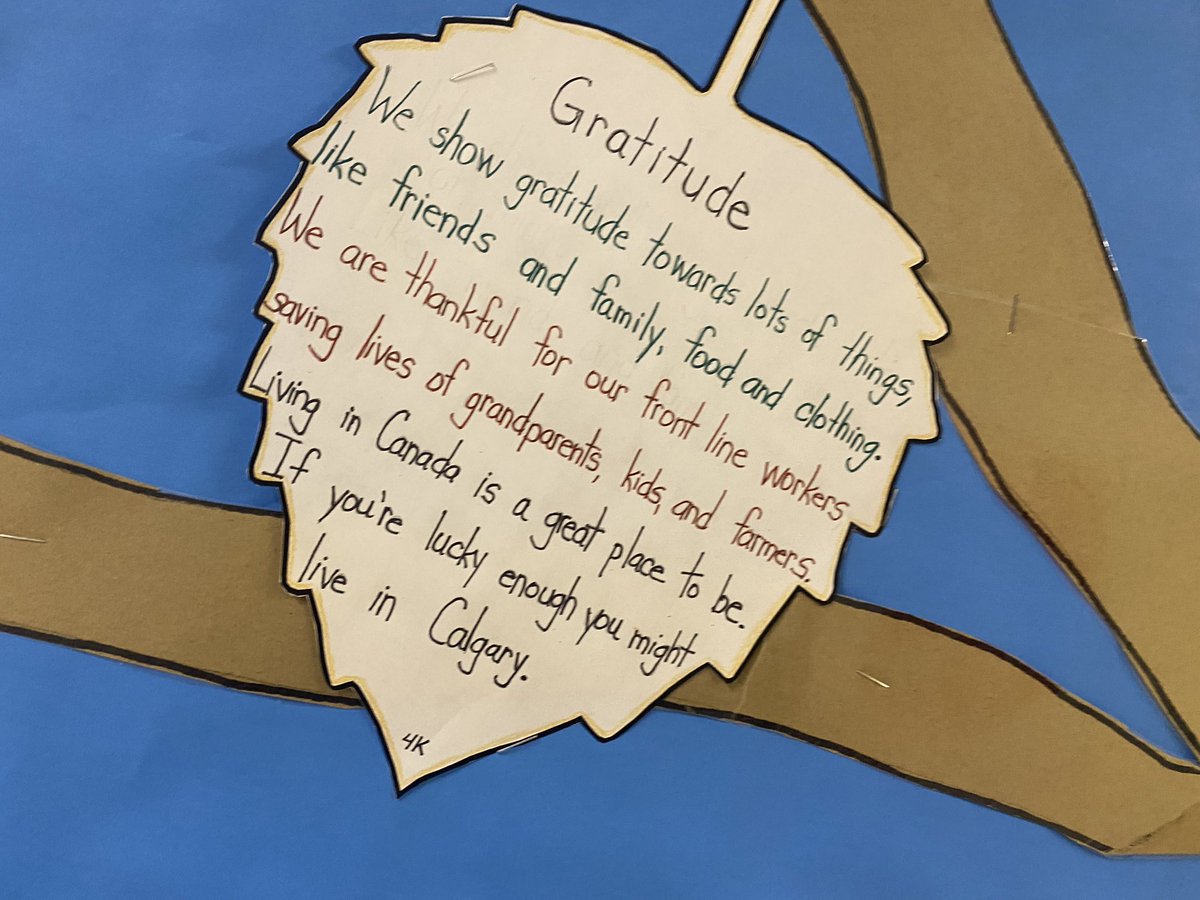 Gratitude
We show gratitude towards lots of things,
like friends and family, food and clothing.
We are thankful for our front line workers
saving lives of grandparents, kids, and farmers.
Living in Canada is a great place to be.
If you're lucky enough you might
live in Calgary.
4K